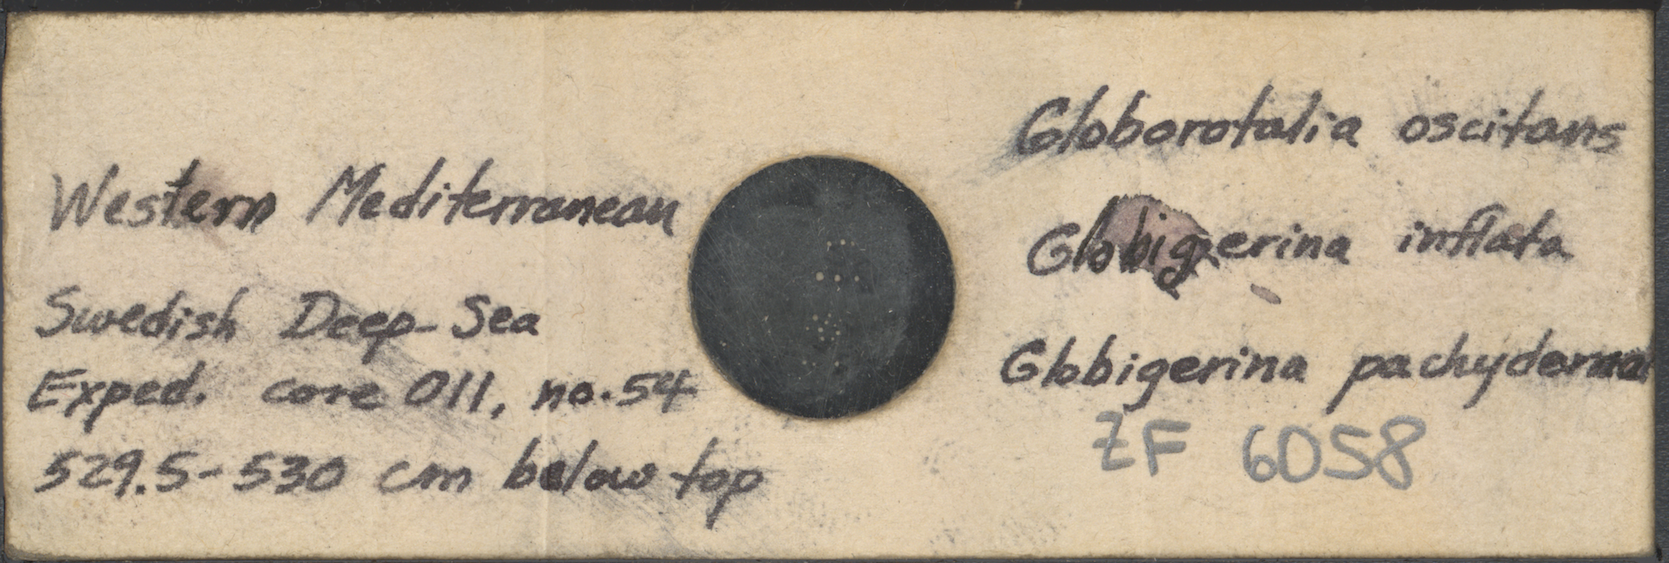 Western Mediterranean
Swedish Deep-Sea
Exped. core 011, no. 54
529.5-530 cm below top
Globorotalia oscitans
Globigerina inflata
Globigerina pachyderma
ZF 6058